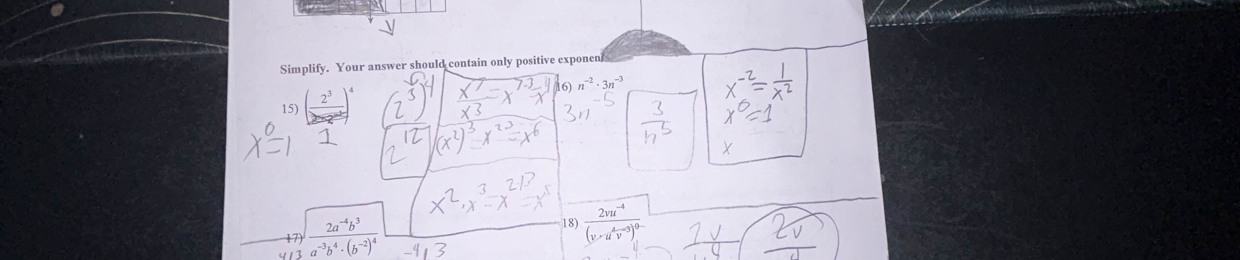 Simplify. Your answer should contain only positive exponen
15) (2^3 / )^4
1
x^0 = 1
(2^3)^4
2^12
x^7/x^3 = x^7-3 = x^4
(x^2)^3 = x^2·3 = x^6
x^2 · x^3 = x^2+3 = x^5
16) n^-2 · 3n^-3
3n^-5
3/n^5
x^-2 = 1/x^2
x^0 = 1
x
17) 2a^-4b^3 / a^-3b^4 · (b^-2)^4
-4 13
18) 2vu^-4 / (v · u^4v^-3)^0
2v